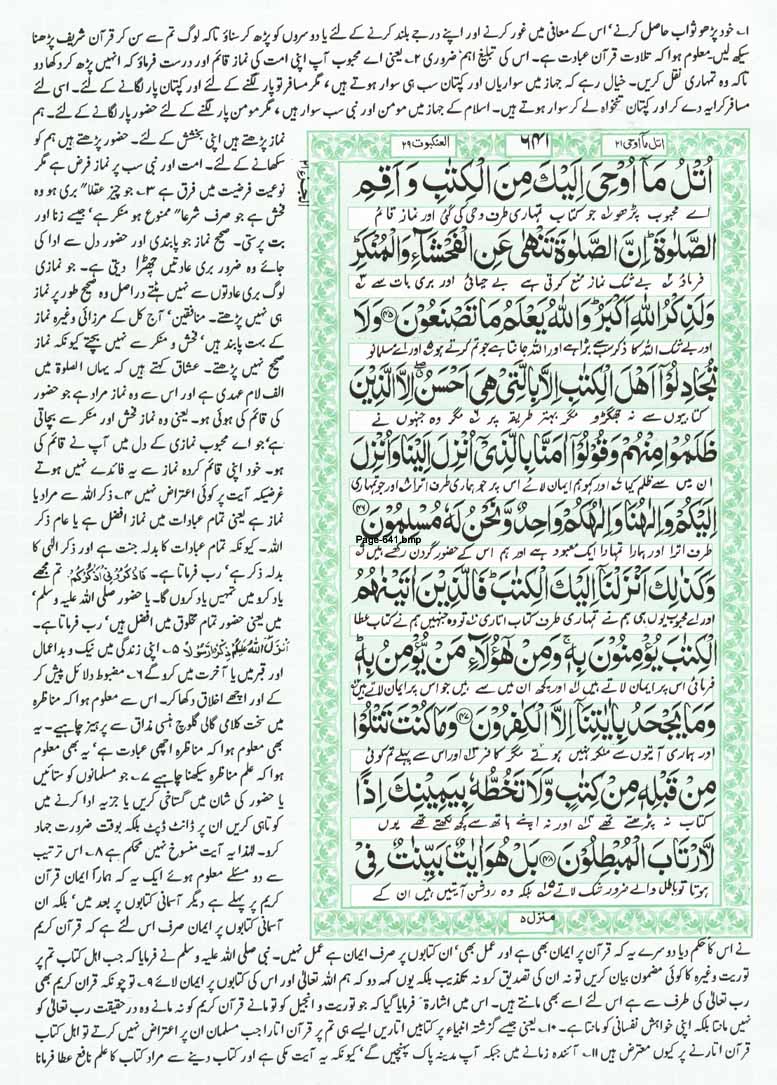 ۱۔ خود پڑھو ثواب حاصل کرنے' اس کے معانی میں غور کرنے اور اپنے درجے بلند کرنے کے لئے یا دوسروں کو پڑھ کر سناؤ تاکہ لوگ تم سے سن کر قرآن شریف پڑھنا
سیکھ لیں۔ معلوم ہوا کہ تلاوت قرآن عبادت ہے۔ اس کی تبلیغ اہم ضروری ۲۔ یعنی اے محبوب آپ اپنی امت کی نماز قائم اور درست فرماؤ کہ انہیں پڑھ کر دکھا دو
تاکہ وہ تمہاری نقل کریں۔ خیال رہے کہ جہاز میں سواریاں اور کپتان سب ہی سوار ہوتے ہیں' مگر مسافر تو پار لگنے کے لئے اور کپتان پار لگانے کے لئے۔ اسی لئے
مسافر کرایہ دے کر اور کپتان تنخواہ لے کر سوار ہوتے ہیں۔ اسلام کے جہاز میں مومن اور نبی سب سوار ہیں' مگر مومن پار لگنے کے لئے حضور پار لگانے کے لئے۔ ہم
اتل مآ اوحی ۲۱
۶۴۱
العنکبوت ۲۹
اُتْلُ مَآ اُوْحِیَ اِلَیْكَ مِنَ الْكِتٰبِ وَ اَقِمِ
اے محبوب پڑھو جو کتاب تمہاری طرف وحی کی گئی اور نماز قائم
الصَّلٰوةَ ؕ اِنَّ الصَّلٰوةَ تَنْهٰی عَنِ الْفَحْشَآءِ وَ الْمُنْكَرِ ؕ
فرماؤ بے شک نماز منع کرتی ہے بے حیائی اور بری بات سے
وَ لَذِكْرُ اللّٰهِ اَكْبَرُ ؕ وَ اللّٰهُ یَعْلَمُ مَا تَصْنَعُوْنَ ﴿۴۵﴾ وَ لَا
اور بے شک اللہ کا ذکر سب سے بڑا ہے اور اللہ جانتا ہے جو تم کرتے ہو اور اے مسلمانو
تُجَادِلُوْۤا اَهْلَ الْكِتٰبِ اِلَّا بِالَّتِیْ هِیَ اَحْسَنُ ۖ اِلَّا الَّذِیْنَ
کتابیوں سے نہ جھگڑو مگر بہتر طریقہ پر مگر وہ جنہوں نے
ظَلَمُوْا مِنْهُمْ وَ قُوْلُوْۤا اٰمَنَّا بِالَّذِیْۤ اُنْزِلَ اِلَیْنَا وَ اُنْزِلَ
ان میں سے ظلم کیا اور کہو ہم ایمان لائے اس پر جو ہماری طرف اترا اور جو تمہاری
اِلَیْكُمْ وَ اِلٰهُنَا وَ اِلٰهُكُمْ وَاحِدٌ وَّ نَحْنُ لَهٗ مُسْلِمُوْنَ ﴿۴۶﴾
Page-641.bmp
طرف اترا اور ہمارا تمہارا ایک معبود ہے اور ہم اس کے حضور گردن رکھے ہیں
وَ كَذٰلِكَ اَنْزَلْنَاۤ اِلَیْكَ الْكِتٰبَ ؕ فَالَّذِیْنَ اٰتَیْنٰهُمُ
اور اے محبوب یوں ہی ہم نے تمہاری طرف کتاب اتاری تو وہ جنہیں ہم نے کتاب عطا
الْكِتٰبَ یُؤْمِنُوْنَ بِهٖ ۚ وَ مِنْ هٰۤؤُلَآءِ مَنْ یُّؤْمِنُ بِهٖ ؕ
فرمائی اس پر ایمان لاتے ہیں اور کچھ ان میں سے ہیں جو اس پر ایمان لاتے ہیں
وَ مَا یَجْحَدُ بِاٰیٰتِنَاۤ اِلَّا الْكٰفِرُوْنَ ﴿۴۷﴾ وَ مَا كُنْتَ تَتْلُوْا
اور ہماری آیتوں سے منکر نہیں ہوتے مگر کافر اور اس سے پہلے تم کوئی
مِنْ قَبْلِهٖ مِنْ كِتٰبٍ وَّ لَا تَخُطُّهٗ بِیَمِیْنِكَ اِذًا
کتاب نہ پڑھتے تھے اور نہ اپنے ہاتھ سے کچھ لکھتے تھے یوں
لَّارْتَابَ الْمُبْطِلُوْنَ ﴿۴۸﴾ بَلْ هُوَ اٰیٰتٌۢ بَیِّنٰتٌ فِیْ
ہوتا تو باطل والے ضرور شک لاتے بلکہ وہ روشن آیتیں ہیں ان کے
منزل ۵
نماز پڑھتے ہیں اپنی بخشش کے لئے۔ حضور پڑھتے ہیں ہم کو
سکھانے کے لئے۔ امت اور نبی سب پر نماز فرض ہے مگر
نوعیت فرضیت میں فرق ہے ۳۔ جو چیز عقلا" بری ہو وہ
فحش ہے جو صرف شرعا" ممنوع ہو منکر ہے' جیسے زنا اور
بت پرستی۔ صحیح نماز جو پابندی اور حضور دل سے ادا کی
جائے وہ ضرور بری عادتیں چھڑا دیتی ہے۔ جو نمازی
لوگ بری عادتوں سے نہیں ہٹتے دراصل وہ صحیح طور پر نماز
ہی نہیں پڑھتے۔ منافقین' آج کل کے مرزائی وغیرہ نماز
کے بہت پابند ہیں' فحش و منکر سے نہیں بچتے کیونکہ نماز
صحیح نہیں پڑھتے۔ عشاق کہتے ہیں کہ یہاں الصلوۃ میں
الف لام عہدی ہے اور اس سے وہ نماز مراد ہے جو حضور
کی قائم کی ہوئی ہو۔ یعنی وہ نماز فحش اور منکر سے بچاتی
ہے' جو اے محبوب نمازی کے دل میں آپ نے قائم کی
ہو۔ خود اپنی قائم کردہ نماز سے یہ فائدے نہیں ہوتے
غرضیکہ آیت پر کوئی اعتراض نہیں ۴۔ ذکر اللہ سے مراد یا
نماز ہے یعنی تمام عبادات میں نماز افضل ہے یا عام ذکر
اللہ۔ کیونکہ تمام عبادات کا بدلہ جنت ہے اور ذکر الٰہی کا
بدلہ ذکر ہے' رب فرماتا ہے۔ فَاذْكُرُوْنِیْۤ اَذْكُرْكُمْ تم مجھے
یاد کرو میں تمہیں یاد کروں گا۔ یا حضور صلی اللہ علیہ وسلم'
میں یعنی حضور تمام مخلوق میں افضل ہیں' رب فرماتا ہے۔
اَنْزَلَ اللّٰهُ عَلَیْكُمْ ذِكْرًا رَّسُوْلًا ۵۔ اپنی زندگی میں نیک و بد اعمال
اور قبر میں یا آخرت میں کرو گے ۶۔ مضبوط دلائل پیش کر
کے اور اچھے اخلاق دکھا کر۔ اس سے معلوم ہوا کہ مناظرہ
میں سخت کلامی گالی گلوچ ہنسی مذاق سے پرہیز چاہیے۔ یہ
بھی معلوم ہوا کہ مناظرہ اچھی عبادت ہے' یہ بھی معلوم
ہوا کہ علم مناظرہ سیکھنا چاہیے ۷۔ جو مسلمانوں کو ستائیں
یا حضور کی شان میں گستاخی کریں یا جزیہ ادا کرنے میں
کوتاہی کریں ان پر ڈانٹ ڈپٹ بلکہ بوقت ضرورت جہاد
کرو۔ لہٰذا یہ آیت منسوخ نہیں محکم ہے ۸۔ اس ترتیب
سے دو مسئلے معلوم ہوئے ایک یہ کہ ہمارا ایمان قرآن
کریم پر پہلے ہے دیگر آسمانی کتابوں پر بعد میں' بلکہ ان
آسمانی کتابوں پر ایمان صرف اس لئے ہے کہ قرآن کریم
نے اس کا حکم دیا دوسرے یہ کہ قرآن پر ایمان بھی ہے اور عمل بھی' ان کتابوں پر صرف ایمان ہے عمل نہیں۔ نبی صلی اللہ علیہ وسلم نے فرمایا کہ جب اہل کتاب تم پر
توریت وغیرہ کا کوئی مضمون بیان کریں تو نہ ان کی تصدیق کرو نہ تکذیب بلکہ یوں کہہ دو کہ ہم اللہ تعالیٰ اور اس کی کتابوں پر ایمان لائے ۹۔ تو چونکہ قرآن کریم بھی
رب تعالیٰ کی طرف سے ہے اس لئے اسے بھی مانتے ہیں۔ اس میں اشارۃً فرمایا گیا کہ جو توریت و انجیل کو تو مانے قرآن کریم کو نہ مانے وہ در حقیقت رب تعالیٰ کو
نہیں مانتا بلکہ اپنی خواہش نفسانی کو مانتا ہے۔ ۱۰۔ یعنی جیسے گزشتہ انبیاء پر کتابیں اتاریں ایسے ہی تم پر قرآن اتارا جب مسلمان ان پر اعتراض نہیں کرتے تو اہل کتاب
قرآن اتارنے پر کیوں معترض ہیں ۱۱۔ آئندہ زمانے میں جبکہ آپ مدینہ پاک پہنچیں گے' کیونکہ یہ آیت مکی ہے اور کتاب دینے سے مراد کتاب کا علم نافع عطا فرمانا